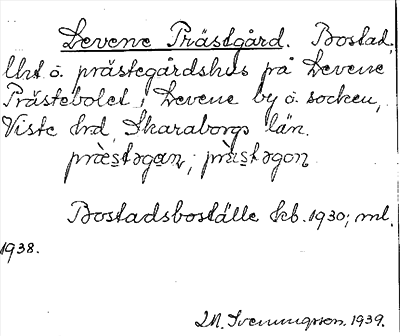 Levene Prästgård. Bostad,
Uht o. prästegårdshus på Levene
Prästebolet, Levene by o. socken,
Viste hrd, Skaraborgs län.
præ̀stəgan, præ̀stəgon
Bostadsboställe kb. 1930; ml.
1938.
Svenningson. 1939.